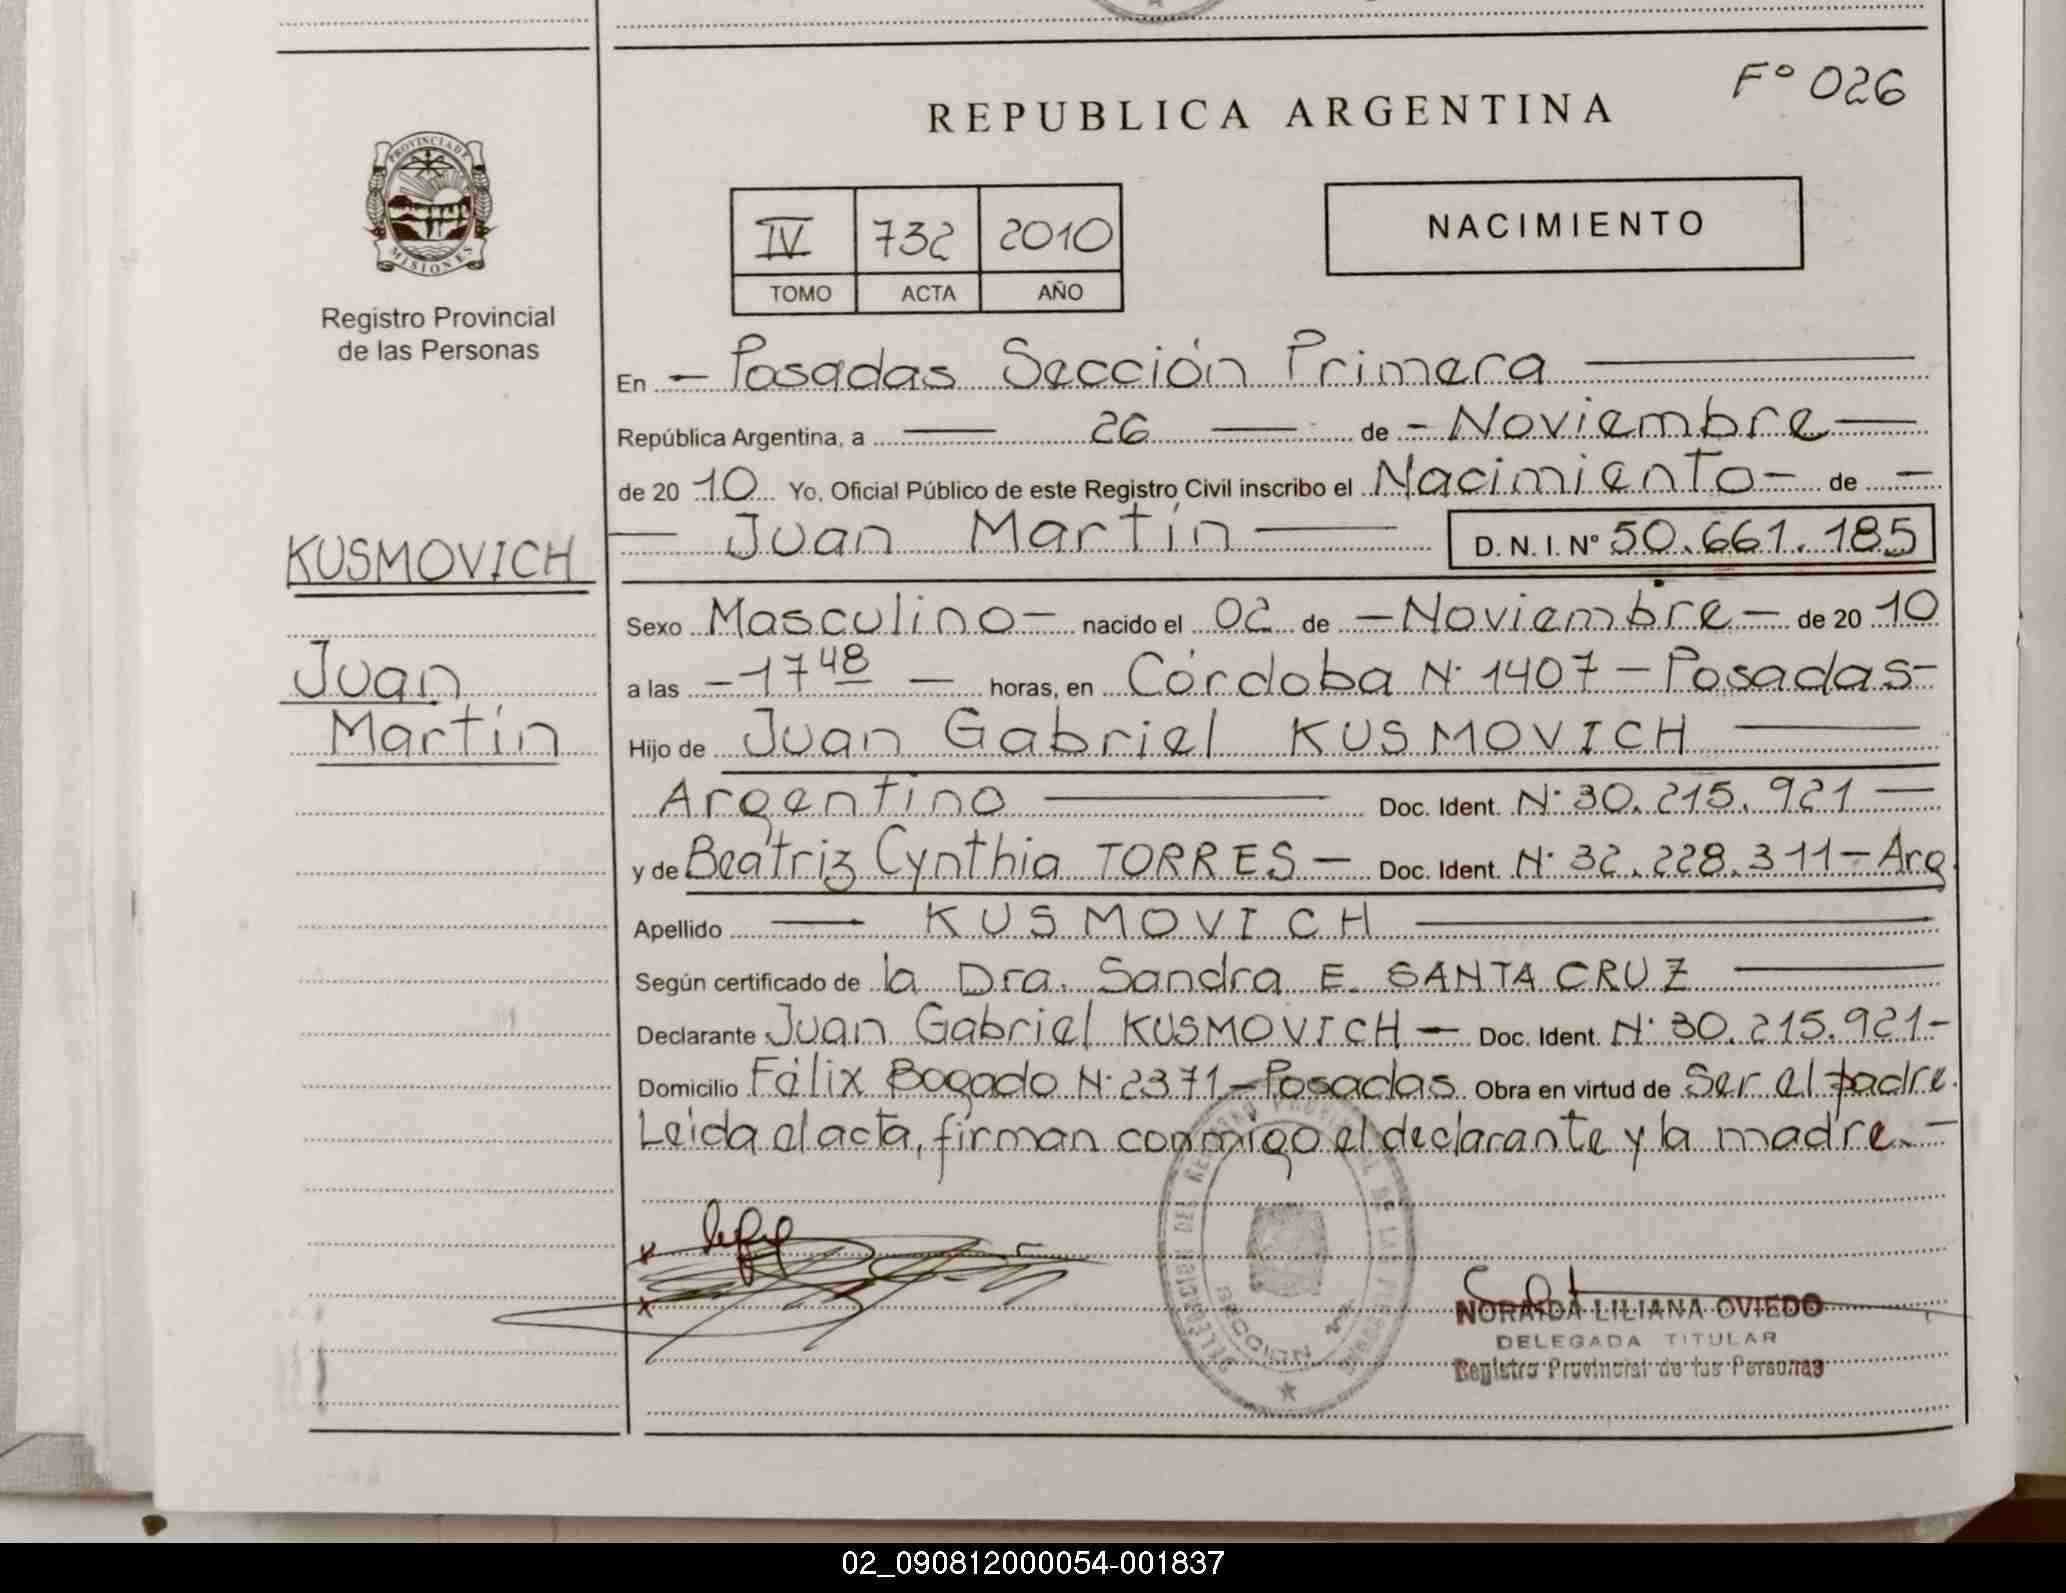 F° 026
REPUBLICA ARGENTINA
PROVINCIA DE
MISIONES
Registro Provincial
de las Personas
IV 732 2010
TOMO ACTA AÑO
NACIMIENTO
En - Posadas Sección Primera
República Argentina, a 26 de - Noviembre
de 20 10 Yo, Oficial Público de este Registro Civil inscribo el Nacimiento - de -
Juan Martín D. N. I. N° 50.661.185
KUSMOVICH
Juan
Martín
Sexo Masculino - nacido el 02 de - Noviembre - de 20 10
a las - 17 48 - horas, en Córdoba N° 1407 - Posadas -
Hijo de Juan Gabriel KUSMOVICH
Argentino Doc. Ident. N° 30.215.921 -
y de Beatriz Cynthia TORRES - Doc. Ident. N° 32.228.311 - Arg.
Apellido - KUSMOVICH
Según certificado de la Dra. Sandra E. SANTA CRUZ
Declarante Juan Gabriel KUSMOVICH - Doc. Ident. N° 30.215.921 -
Domicilio Félix Bogado N° 2371 - Posadas Obra en virtud de Ser el padre.
Leida el acta, firman conmigo el declarante y la madre. -
x
x
DELEGACION DEL REGISTRO PROVINCIAL DE LAS PERSONAS
SECCION 1ra
NORAIDA LILIANA OVIEDO
DELEGADA TITULAR
Registro Provincial de las Personas
02_090812000054-001837